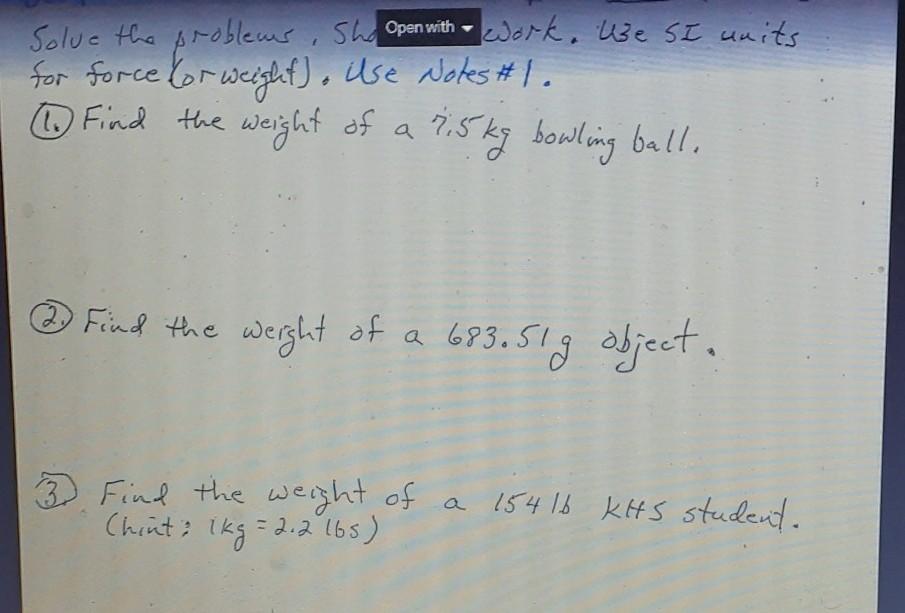 Solve the problems, Sho Open with work. Use SI units
for force (or weight). Use Notes #1.
1. Find the weight of a 7.5 kg bowling ball.
2. Find the weight of a 683.51g object.
3. Find the weight of a 154 lb KHS student.
(hint: 1kg = 2.2 lbs)